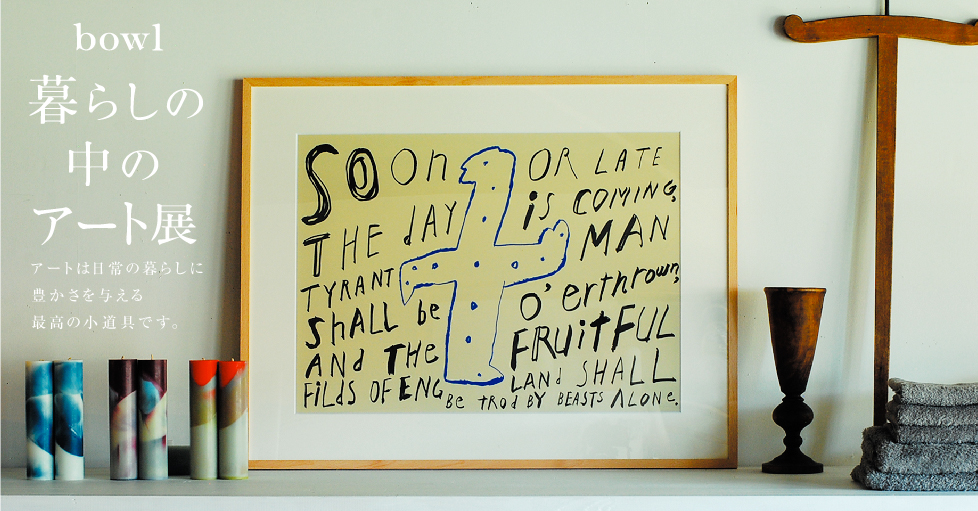 bowl
暮らしの
中の
アート展
アートは日常の暮らしに
豊かさを与える
最高の小道具です。
SOon OR LATE
THE dAY iS COMING,
TYRANT MAN
ShALL be O'erthrown,
ANd THE FRUitFUL
FiLdS OF ENG LANd SHALL
Be trod BY BEASTS ALONE.